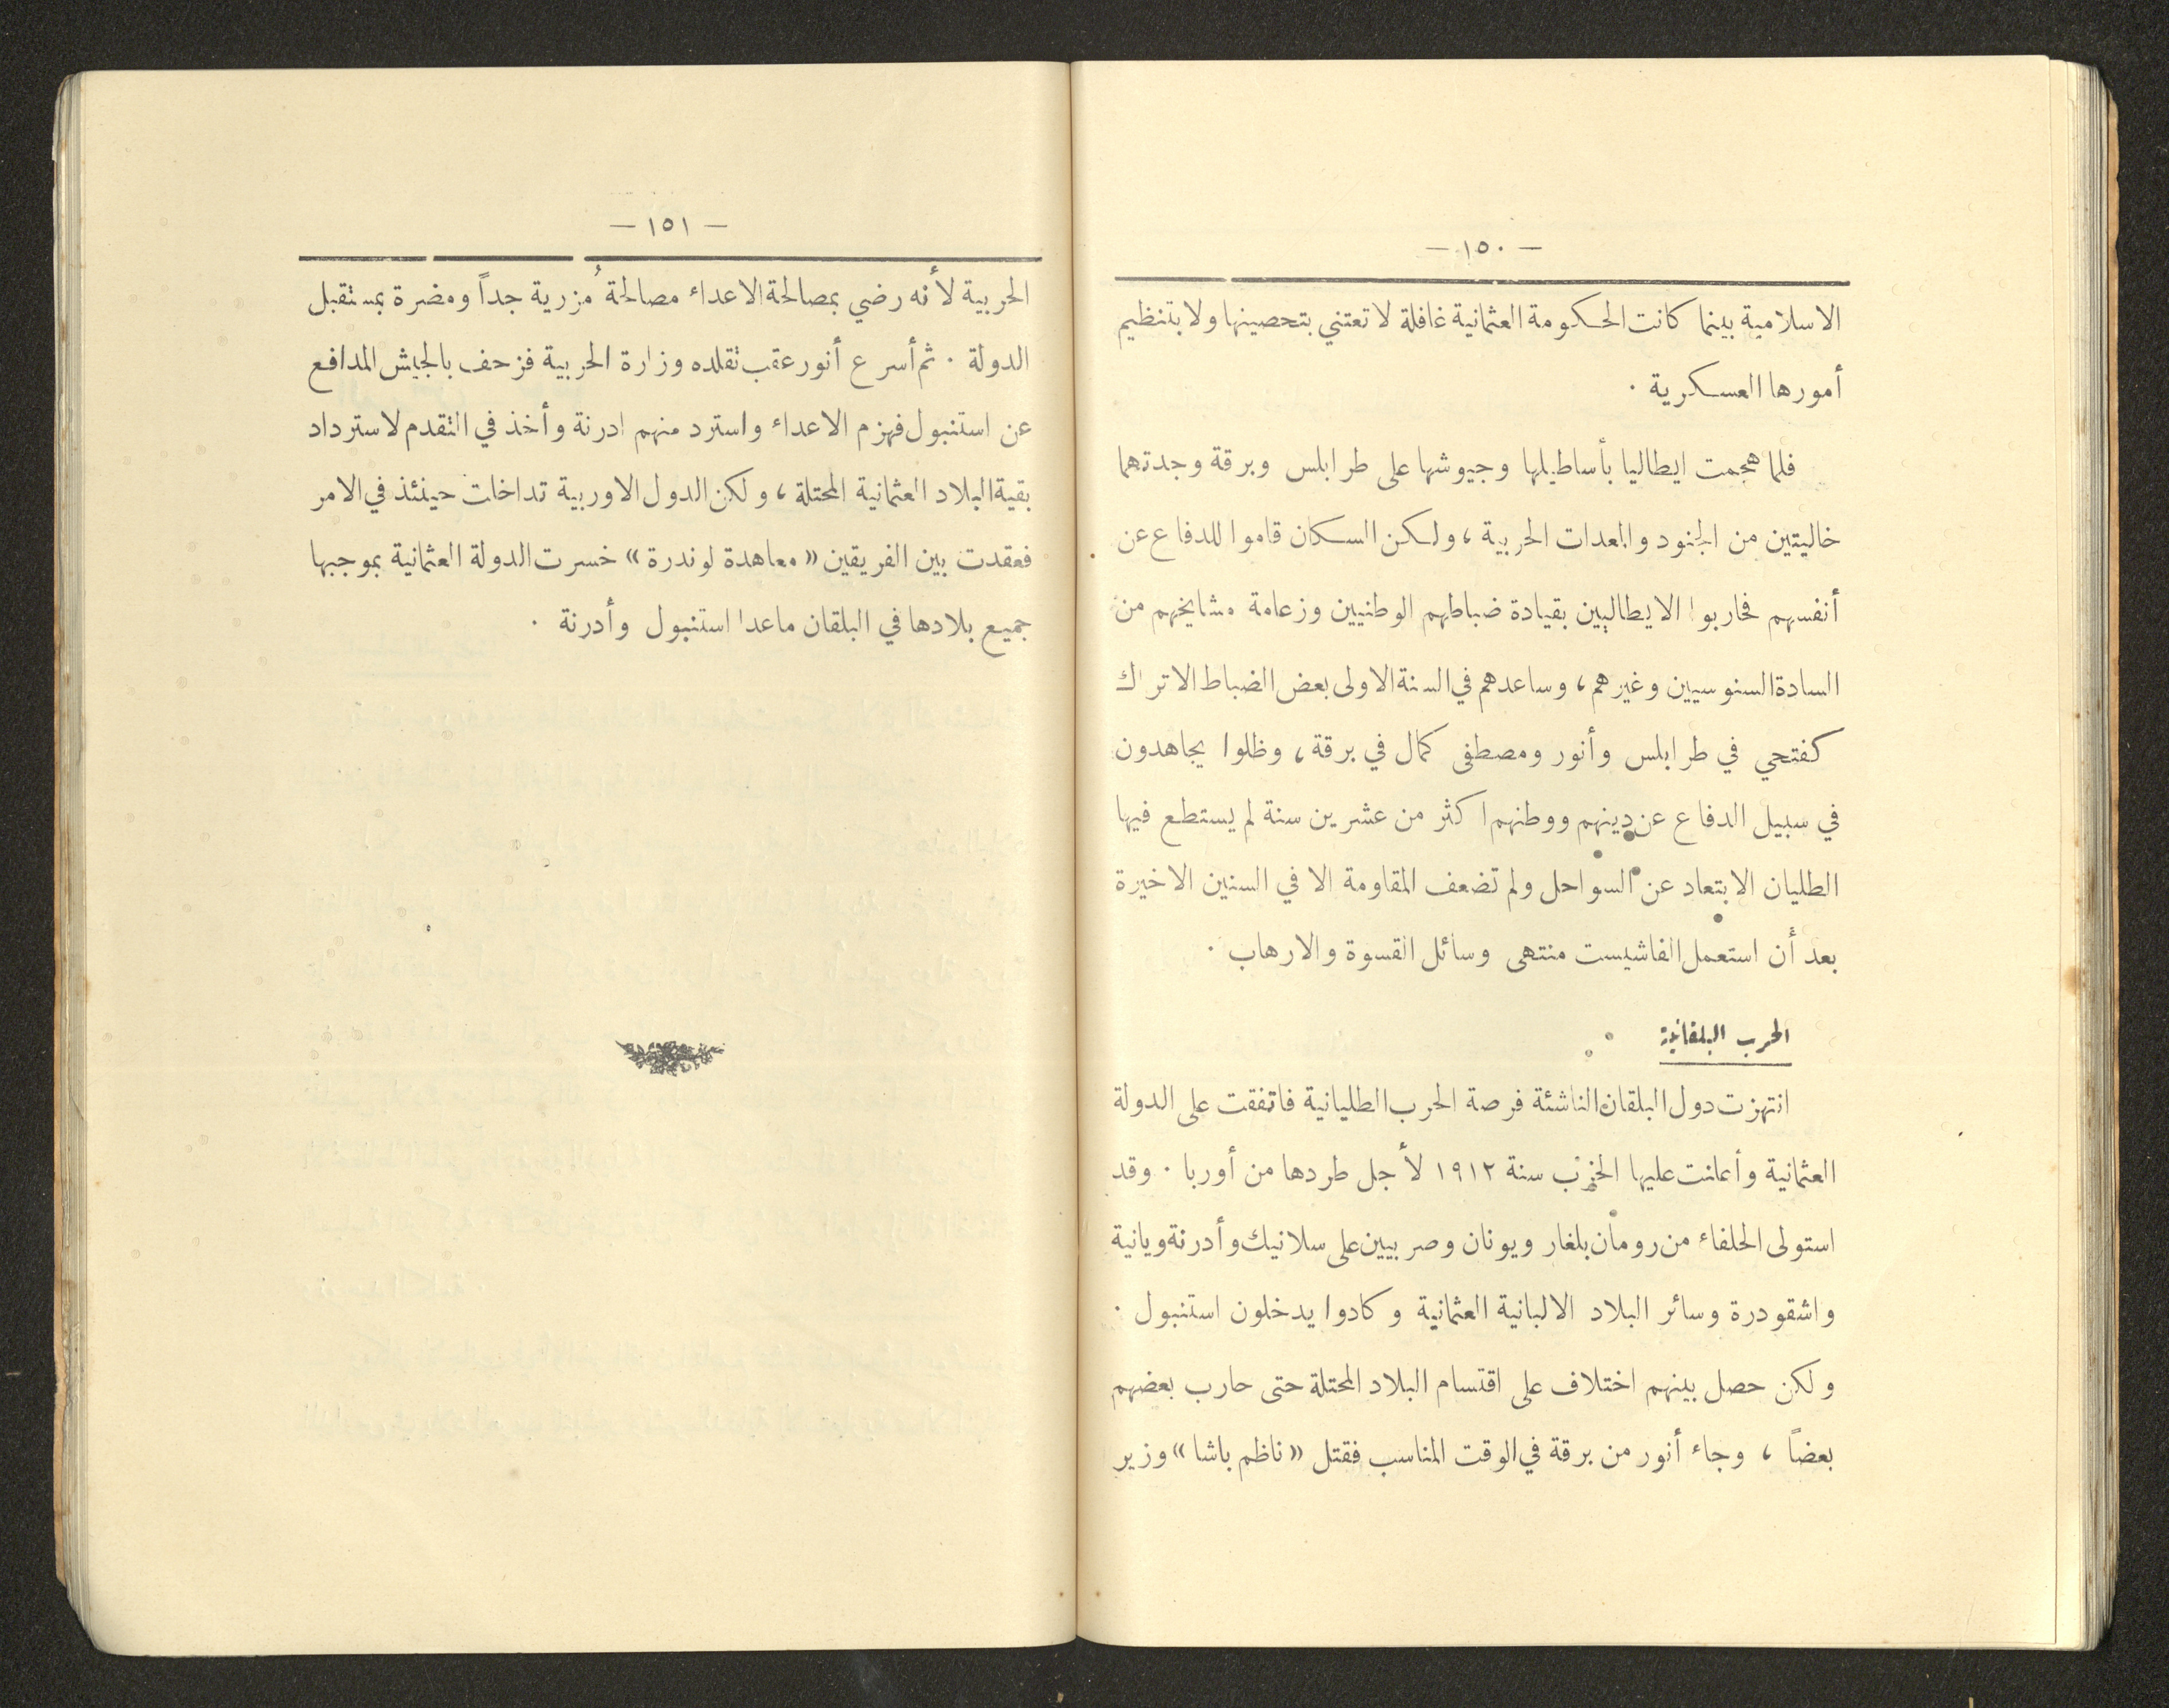 — ١٥٠ —
الاسلامية بينما كانت الحكومة العثمانية غافلة لا تعتني بتحصينها ولا بتنظيم
أمورها العسكرية .
فلما هجمت ايطاليا بأساطيلها وجيوشها على طرابلس وبرقة وجدتهما
خاليتين من الجنود والمعدات الحربية ، ولكن السكان قاموا للدفاع عن
أنفسهم فحاربوا الايطاليين بقيادة ضباطهم الوطنيين وزعامة مشايخهم من
السادة السنوسيين وغيرهم ، وساعدهم في السنة الاولى بعض الضباط الاتراك
كفتحي في طرابلس وأنور ومصطفى كمال في برقة ، وظلوا يجاهدون
في سبيل الدفاع عن دينهم ووطنهم اكثر من عشرين سنة لم يستطع فيها
الطليان الابتعاد عن السواحل ولم تضعف المقاومة الا في السنين الاخيرة
بعد أن استعمل الفاشيست منتهى وسائل القسوة والارهاب .
الحرب البلقانية
انتهزت دول البلقان الناشئة فرصة الحرب الطليانية فاتفقت على الدولة
العثمانية وأعلنت عليها الحرب سنة ١٩١٢ لأجل طردها من أوربا . وقد
استولى الحلفاء من رومان بلغار ويونان وصربيين على سلانيك وأدرنة ويانية
واشقودرة وسائر البلاد الالبانية العثمانية وكادوا يدخلون استنبول .
ولكن حصل بينهم اختلاف على اقتسام البلاد المحتلة حتى حارب بعضهم
بعضاً ، وجاء أنور من برقة في الوقت المناسب فقتل « ناظم باشا » وزير
— ١٥١ —
الحربية لأنه رضي بمصالحة الاعداء مصالحة مُزرية جداً ومضرة بمستقبل
الدولة . ثم أسرع أنور عقب تقلده وزارة الحربية فزحف بالجيش المدافع
عن استنبول فهزم الاعداء واسترد منهم ادرنة وأخذ في التقدم لاسترداد
بقية البلاد العثمانية المحتلة ، ولكن الدول الاوربية تداخلت حينئذ في الامر
فعقدت بين الفريقين « معاهدة لوندرة » خسرت الدولة العثمانية بموجبها
جميع بلادها في البلقان ماعدا استنبول وأدرنة .